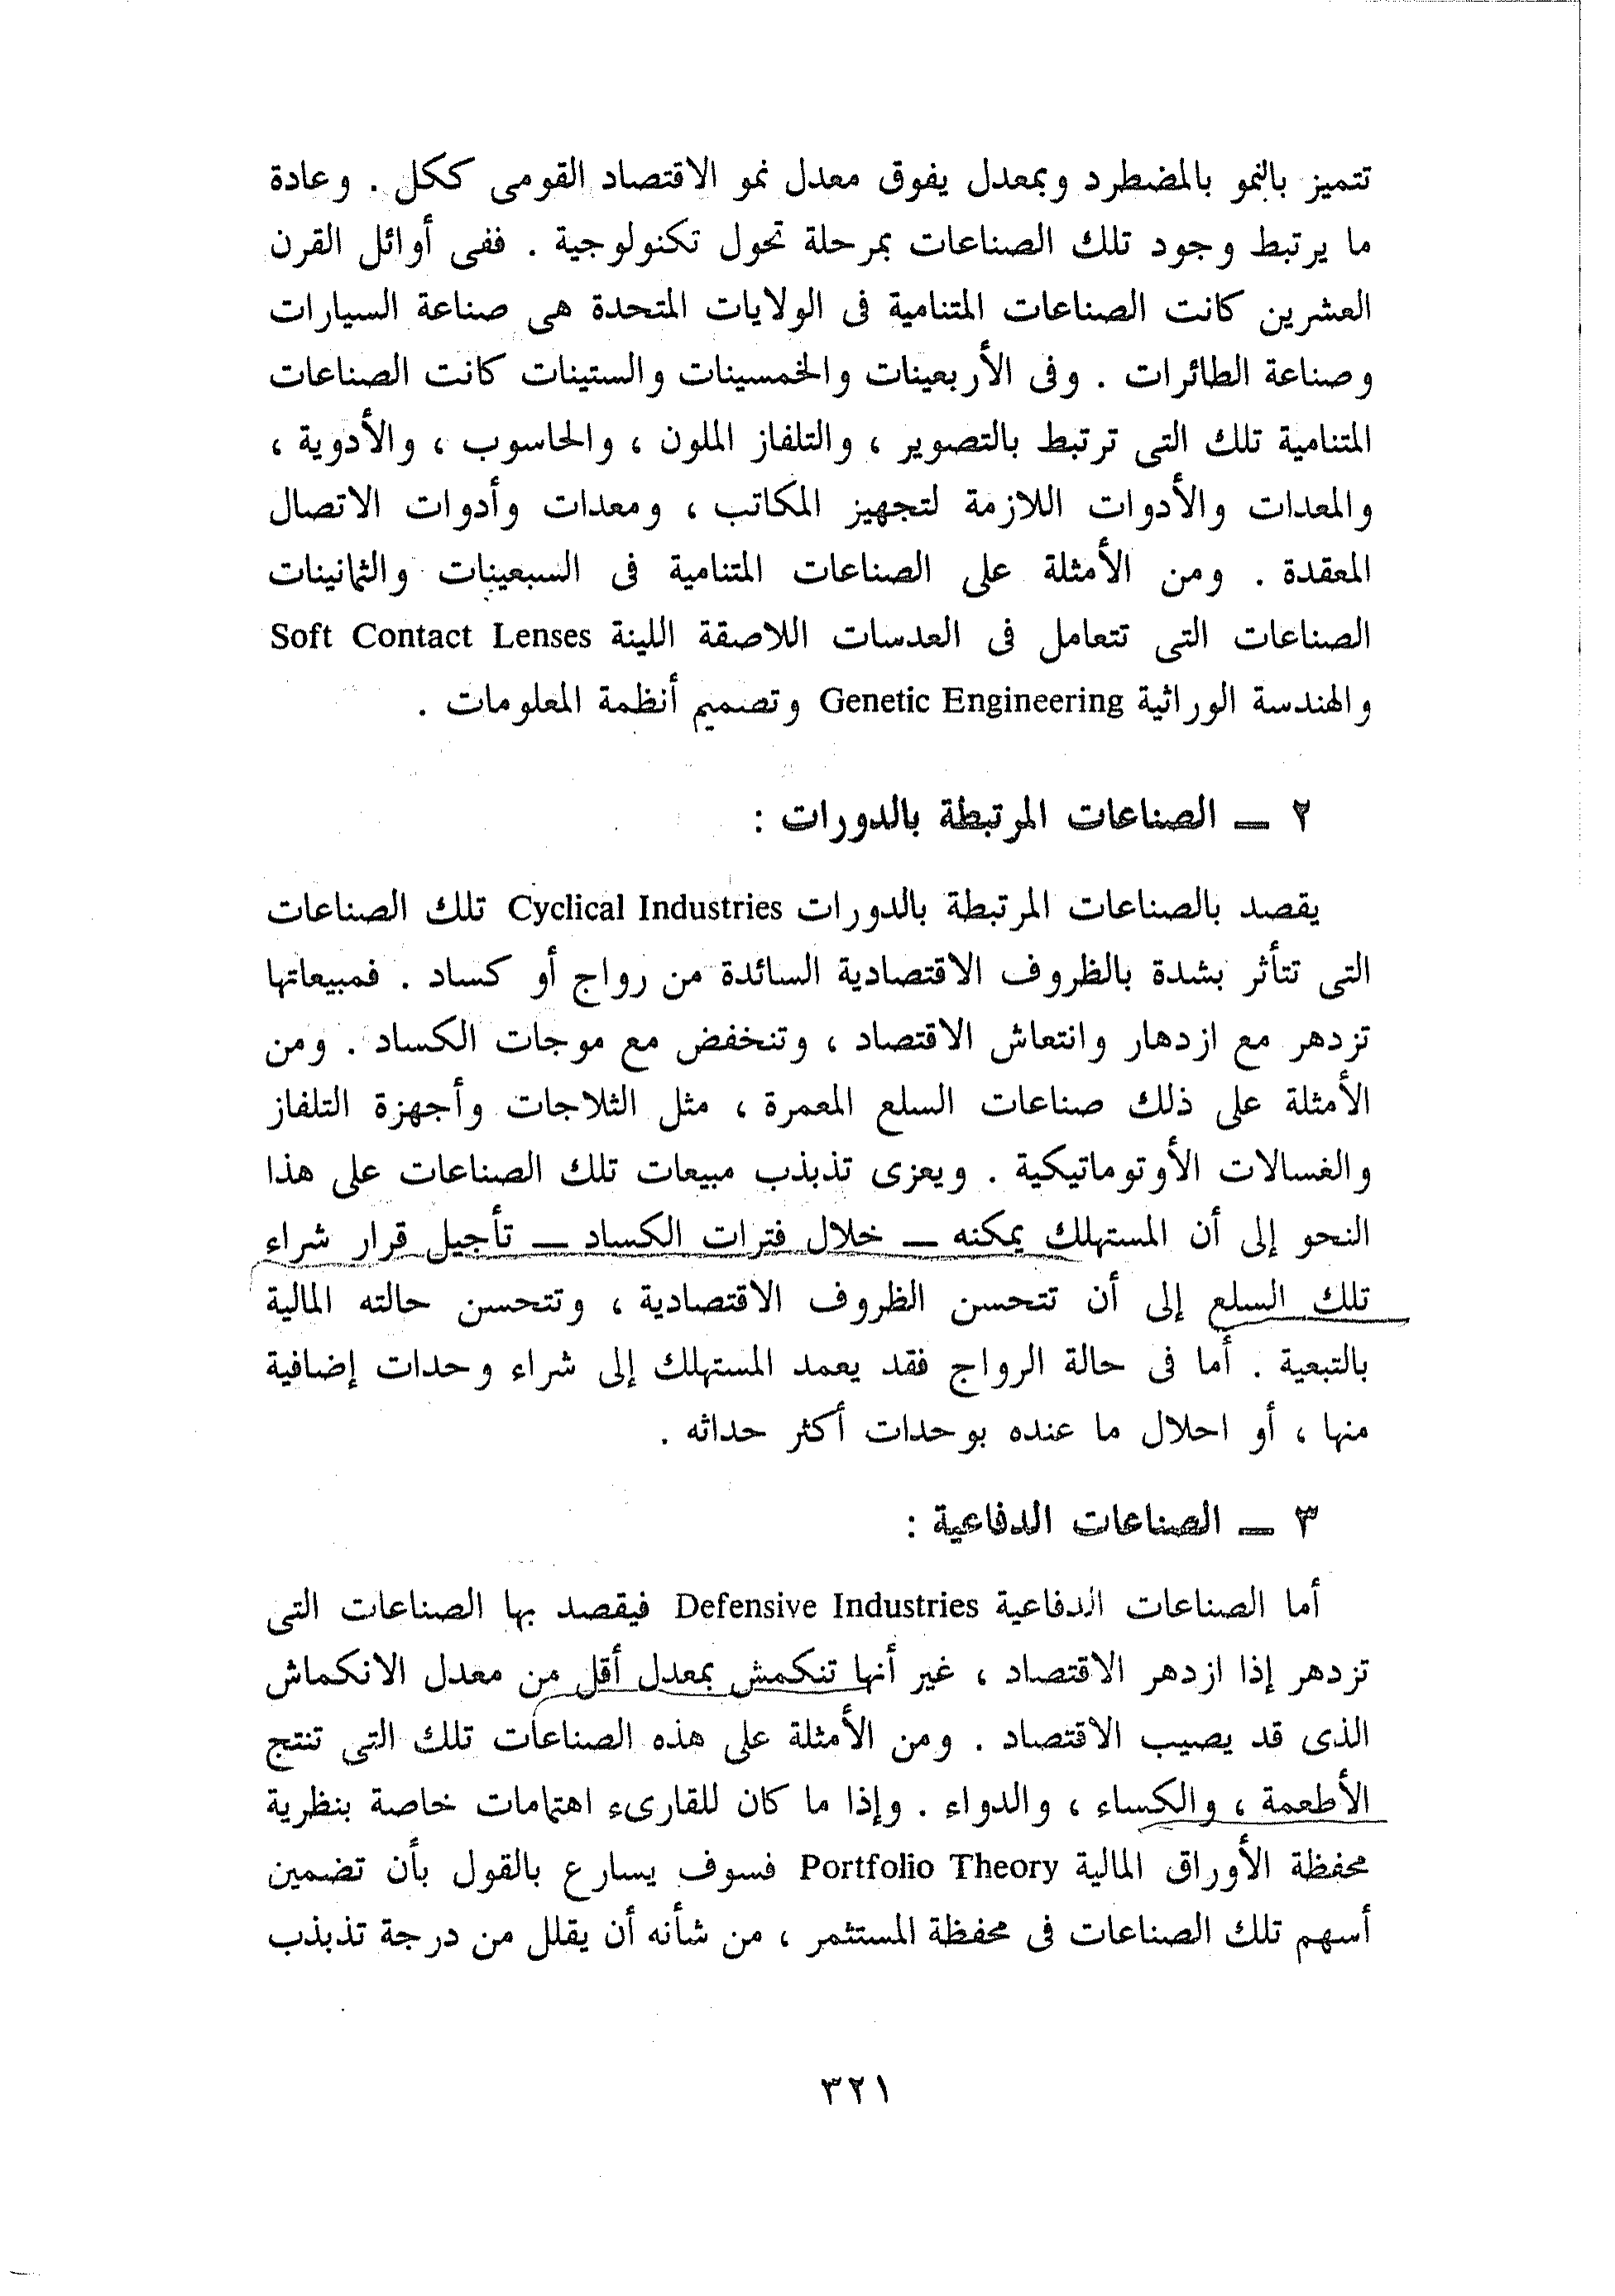 تتميز بالنمو بالمضطرد وبمعدل يفوق معدل نمو الاقتصاد القومى ككل . وعادة
ما يرتبط وجود تلك الصناعات بمرحلة تحول تكنولوجية . ففى أوائل القرن
العشرين كانت الصناعات المتنامية فى الولايات المتحدة هى صناعة السيارات
وصناعة الطائرات . وفى الأربعينات والخمسينات والستينات كانت الصناعات
المتنامية تلك التى ترتبط بالتصوير ، والتلفاز الملون ، والحاسوب ، والأدوية ،
والمعدات والأدوات اللازمة لتجهيز المكاتب ، ومعدات وأدوات الاتصال
المعقدة . ومن الأمثلة على الصناعات المتنامية فى السبعينات والثمانينات
الصناعات التى تتعامل فى العدسات اللاصقة اللينة Soft Contact Lenses
والهندسة الوراثية Genetic Engineering وتصميم أنظمة المعلومات .
٢ ــ الصناعات المرتبطة بالدورات :
يقصد بالصناعات المرتبطة بالدورات Cyclical Industries تلك الصناعات
التى تتأثر بشدة بالظروف الاقتصادية السائدة من رواج أو كساد . فمبيعاتها
تزدهر مع ازدهار وانتعاش الاقتصاد ، وتنخفض مع موجات الكساد . ومن
الأمثلة على ذلك صناعات السلع المعمرة ، مثل الثلاجات وأجهزة التلفاز
والغسالات الأوتوماتيكية . ويعزى تذبذب مبيعات تلك الصناعات على هذا
النحو إلى أن المستهلك يمكنه ــ خلال فترات الكساد ــ تأجيل قرار شراء
تلك السلع إلى أن تتحسن الظروف الاقتصادية ، وتتحسن حالته المالية
بالتبعية . أما فى حالة الرواج فقد يعمد المستهلك إلى شراء وحدات إضافية
منها ، أو احلال ما عنده بوحدات أكثر حداثه .
٣ ــ الصناعات الدفاعية :
أما الصناعات الدفاعية Defensive Industries فيقصد بها الصناعات التى
تزدهر إذا ازدهر الاقتصاد ، غير أنها تنكمش بمعدل أقل من معدل الانكماش
الذى قد يصيب الاقتصاد . ومن الأمثلة على هذه الصناعات تلك التى تنتج
الأطعمة ، والكساء ، والدواء . وإذا ما كان للقارىء اهتمامات خاصة بنظرية
محفظة الأوراق المالية Portfolio Theory فسوف يسارع بالقول بأن تضمين
أسهم تلك الصناعات فى محفظة المستثمر ، من شأنه أن يقلل من درجة تذبذب
٣٢١